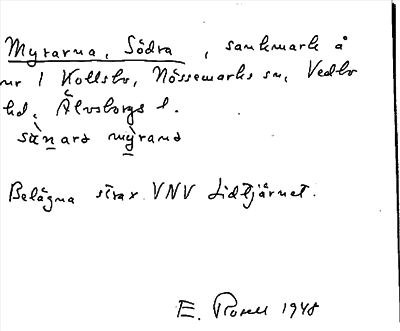 Myrarna, Södra, sankmark å
nr 1 Kollsbo, Nössemarks sn, Vedbo
hd, Älvsborgs l.
sànard mỳrand
Belägna strax VNV Lidtjärnet.
E. 1948